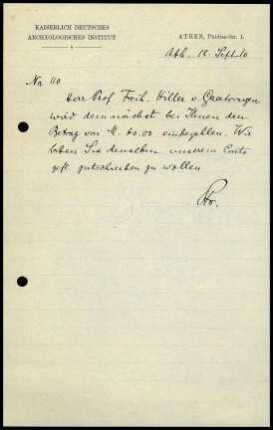 KAISERLICH DEUTSCHES
ARCHÄOLOGISCHES INSTITUT
ATHEN, Phidias-Str. 1.
Ath. 18. Sept. 10
No. 110
Herr Prof. Freih. Hiller v. Gaertringen
wird demnächst bei Ihnen den
Betrag von M. 60.00 einbezahlen. Wir
bitten Sie denselben unserem Conto
gefl. gutschreiben zu wollen